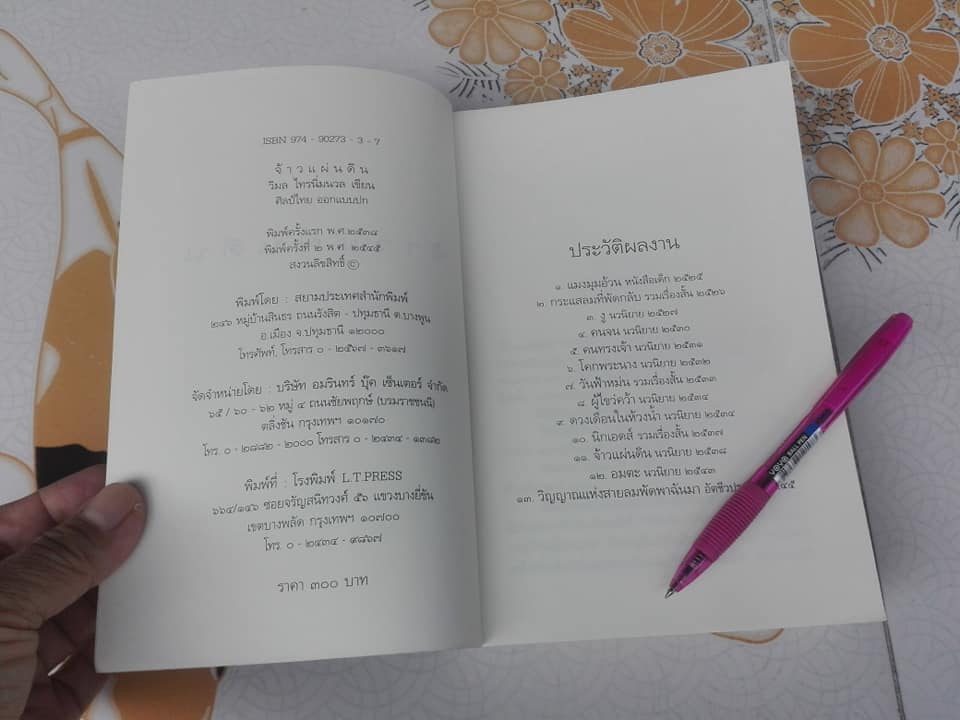 ISBN 974 - 90273 - 3 - 7
จ้าวแผ่นดิน
วิมล ไทรนิ่มนวล เขียน
ศิลป์ไทย ออกแบบปก
พิมพ์ครั้งแรก พ.ศ.๒๕๓๘
พิมพ์ครั้งที่ ๒ พ.ศ. ๒๕๔๕
สงวนลิขสิทธิ์ ©
พิมพ์โดย : สยามประเทศสำนักพิมพ์
๒๔๖ หมู่บ้านสินธร ถนนรังสิต - ปทุมธานี ต.บางพูน
อ.เมือง จ.ปทุมธานี ๑๒๐๐๐
โทรศัพท์, โทรสาร ๐ - ๒๕๖๗ - ๓๖๑๗
จัดจำหน่ายโดย : บริษัท อมรินทร์ บุ๊ค เซ็นเตอร์ จำกัด
๖๕ / ๖๐ - ๖๒ หมู่ ๔ ถนนชัยพฤกษ์ (บรมราชชนนี)
ตลิ่งชัน กรุงเทพฯ ๑๐๑๗๐
โทร. ๐ - ๒๘๘๒ - ๒๐๐๐ โทรสาร ๐ - ๒๔๓๔ - ๑๓๘๒
พิมพ์ที่ : โรงพิมพ์ L.T.PRESS
๖๖๔/๑๔๖ ซอยจรัญสนิทวงศ์ ๕๖ แขวงบางยี่ขัน
เขตบางพลัด กรุงเทพฯ ๑๐๗๐๐
โทร. ๐ - ๒๔๓๔ - ๙๘๖๗
ราคา ๓๐๐ บาท
ประวัติผลงาน
๑. แมงมุมอ้วน หนังสือเด็ก ๒๕๒๕
๒. กระแสลมที่พัดกลับ รวมเรื่องสั้น ๒๕๒๖
๓. งู นวนิยาย ๒๕๒๗
๔. คนจน นวนิยาย ๒๕๓๐
๕. คนทรงเจ้า นวนิยาย ๒๕๓๑
๖. โคกพระนาง นวนิยาย ๒๕๓๒
๗. วันฟ้าหม่น รวมเรื่องสั้น ๒๕๓๓
๘. ผู้ไขว่คว้า นวนิยาย ๒๕๓๔
๙. ดวงเดือนในห้วงน้ำ นวนิยาย ๒๕๓๔
๑๐. นิกเอดส์ รวมเรื่องสั้น ๒๕๓๗
๑๑. จ้าวแผ่นดิน นวนิยาย ๒๕๓๘
๑๒. อมตะ นวนิยาย ๒๕๔๓
๑๓. วิญญาณแห่งสายลมพัดพาฉันมา อัตชีวป ๔๕
BALL PEN